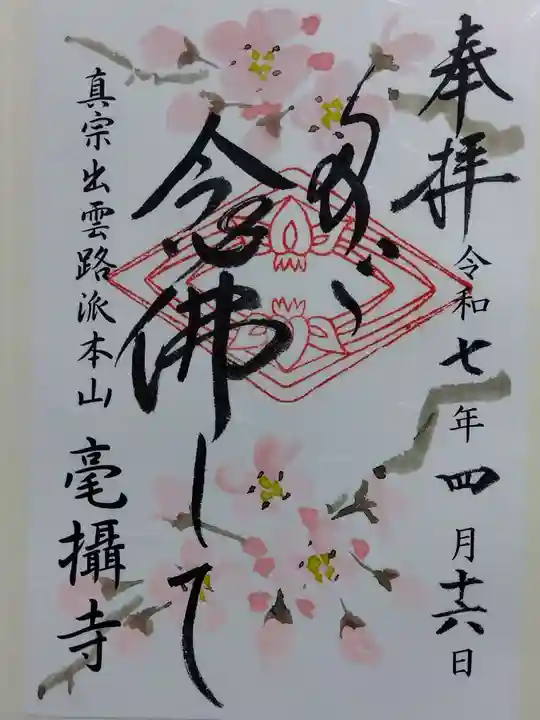 奉拝 令和七年四月十六日
たゞ
念佛して
真宗出雲路派本山 毫攝寺